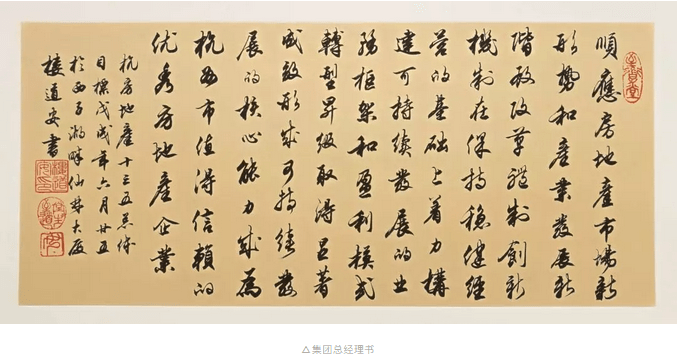 順應房地產市場新
形勢和產業發展新
階段改革體制創新
機制在保持穩健經
營的基础上着力構
建可持续發展的业
務框架和盈利模式
轉型昇级取得显著
成效形成可持续發
展的核心能力成為
杭州市值得信賴的
优秀房地產企業
杭房地產十三五总体
目標戊戌年六月廿五
於西子湖畔仙林大厦
樓道安書
△集团总经理书